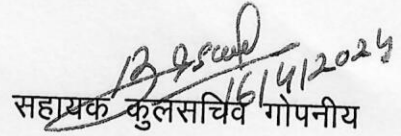 16/4/2024
सहायक कुलसचिव गोपनीय